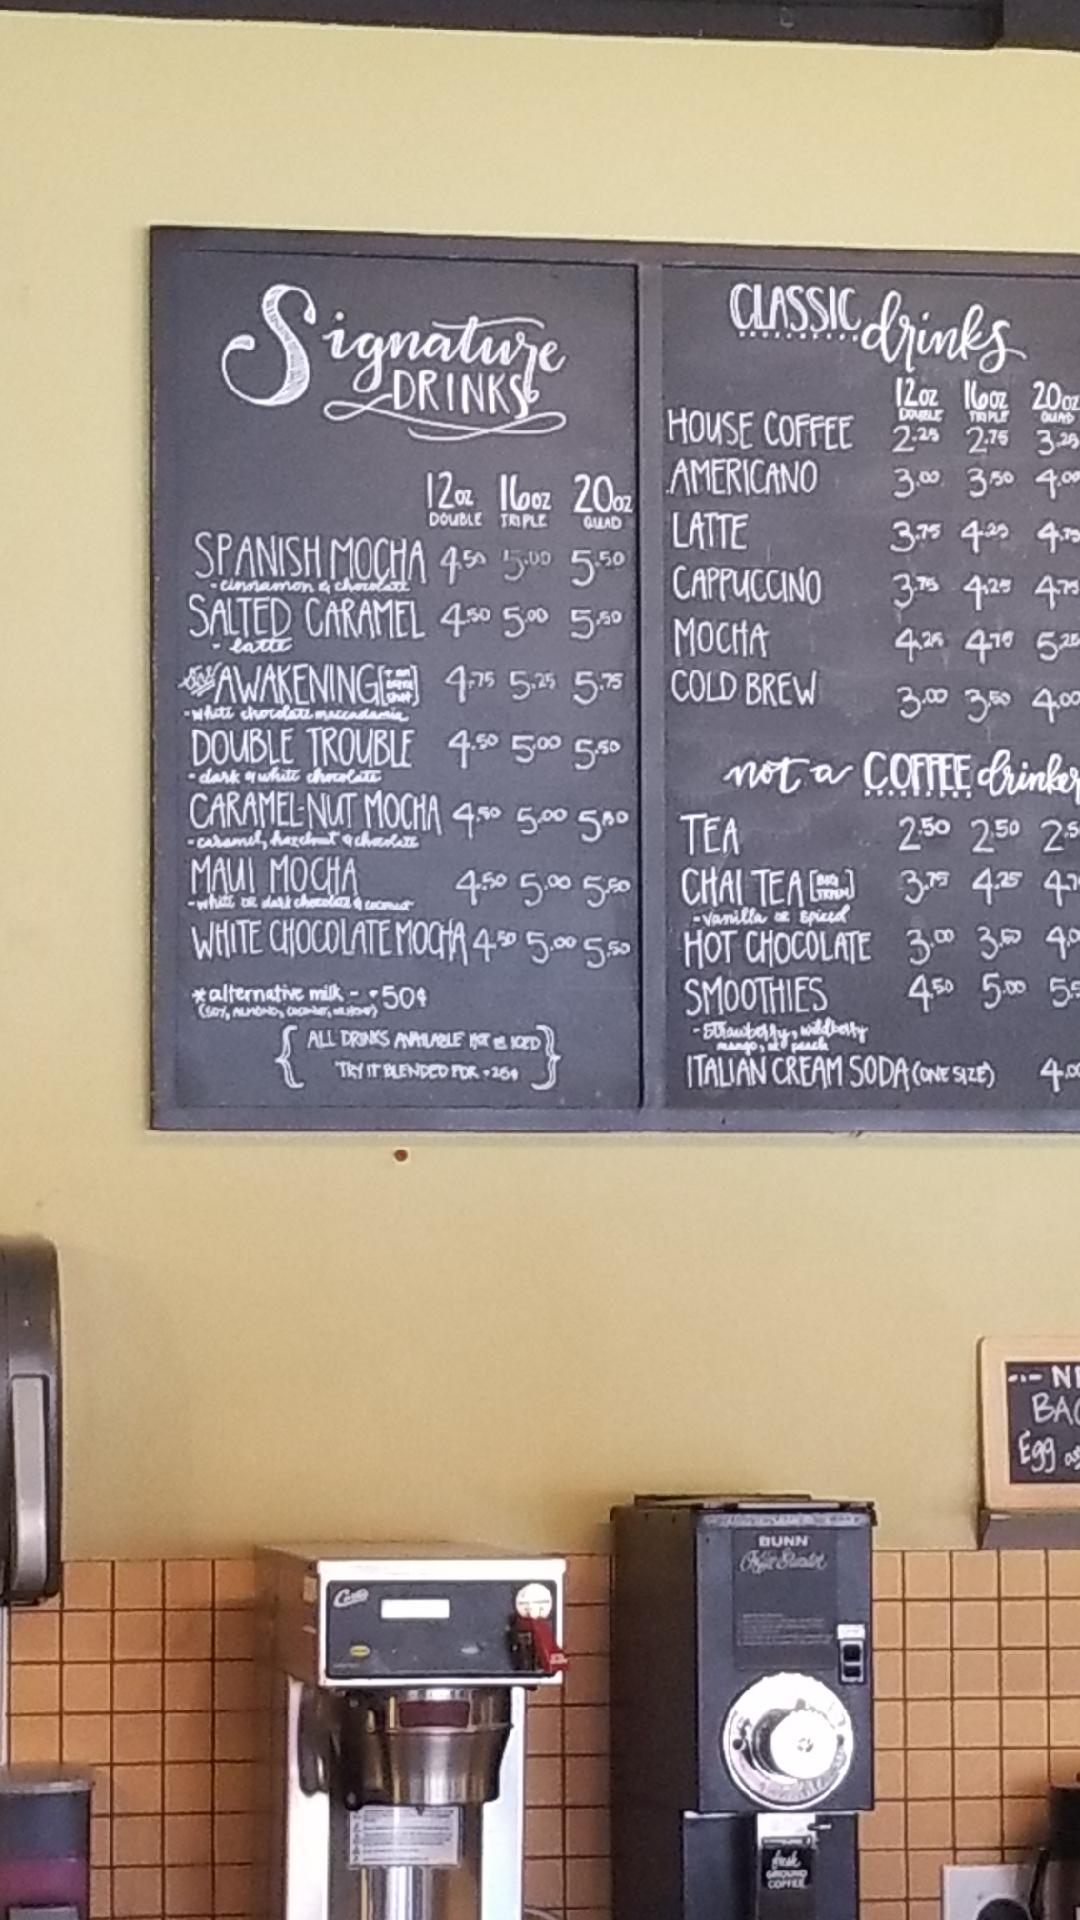 Signature
DRINKS
12oz 16oz 20oz
DOUBLE TRIPLE QUAD
SPANISH MOCHA 4.50 5.00 5.50
- cinnamon & chocolate
SALTED CARAMEL 4.50 5.00 5.50
- latte
AWAKENING 4.75 5.25 5.75
- white chocolate maccadamia
DOUBLE TROUBLE 4.50 5.00 5.50
- dark & white chocolate
CARAMEL-NUT MOCHA 4.50 5.00 5.50
- caramel, hazelnut & chocolate
MAUI MOCHA 4.50 5.00 5.50
- white or dark chocolate & coconut
WHITE CHOCOLATE MOCHA 4.50 5.00 5.50
*alternative milk - +50¢
(SOY, ALMOND, COCONUT,
ALL DRINKS AVAILABLE HOT or ICED
TRY IT BLENDED FOR +25¢
CLASSIC drinks
12oz 16oz 20oz
DOUBLE TRIPLE QUAD
HOUSE COFFEE 2.25 2.75 3.25
AMERICANO 3.00 3.50 4.00
LATTE 3.75 4.25 4.75
CAPPUCCINO 3.75 4.25 4.75
MOCHA 4.25 4.75 5.25
COLD BREW 3.00 3.50 4.00
not a COFFEE drinker
TEA 2.50 2.50 2.5
CHAI TEA [BIG TRAIN] 3.75 4.25 4.7
- vanilla or spiced
HOT CHOCOLATE 3.00 3.50 4.0
SMOOTHIES 4.50 5.00 5.5
- strawberry, wildberry
mango, or peach
ITALIAN CREAM SODA (ONE SIZE) 4.00
BA
Egg
Curtis
BUNN
Coffee Grinder
fresh
GROUND
COFFEE